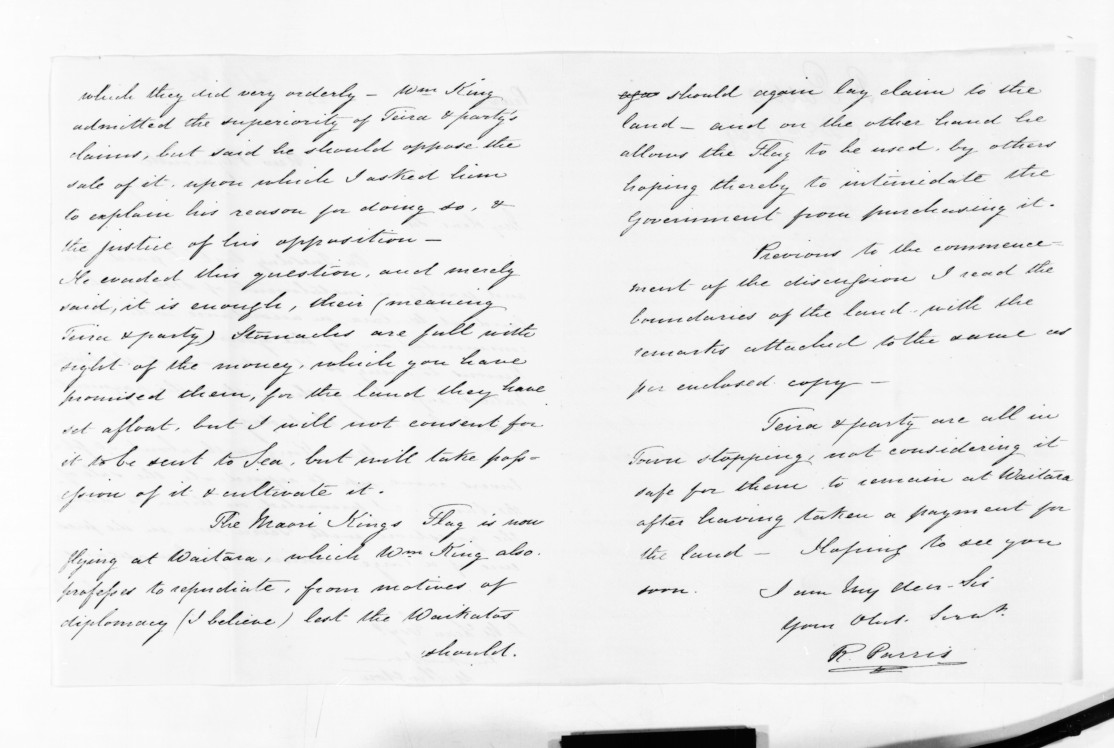 which they did very orderly – Wm King
admitted the superiority of Teira & party's
claims, but said he should oppose the
sale of it, upon which I asked him
to explain his reason for doing so, &
the justice of his opposition –
He evaded this question, and merely
said, it is enough, their (meaning
Teira & party) Stomachs are full with
sight of the money, which you have
promised them, for the land they have
set afloat, but I will not consent for
it to be sent to Sea, but will take pos-
ession of it & cultivate it.
The Maori Kings Flag is now
flying at Waitara, which Wm King also
professes to repudiate, from motives of
diplomacy (I believe) lest the Waikatos
should.
should again lay claim to the
land – and on the other hand he
allows the Flag to be used by others
hoping thereby to intimidate the
Government from purchasing it.
Previous to the commence-
ment of the discussion I read the
boundaries of the land with the
remarks attached to the same as
per enclosed copy –
Teira & party are all in
Town stopping, not considering it
safe for them to remain at Waitara
after having taken a payment for
the land – Hoping to see you
soon. I am My dear Sir
Your Obt. Servt.
R. Parris